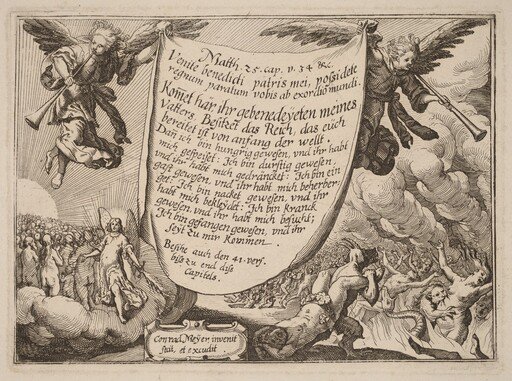 Matth. 25. cap. v. 34 &c.
Venite benedicti patris mei, possidete
regnum paratum vobis ab exordio mundi.
Komet har, ihr gebenedeyeten meines
Vatters. Besitzet das Reich, das euch
bereitet ist von anfang der wellt.
Dañ ich bin hungrig gewesen, vnd ihr habt
mich gespeiset: Ich bin durstig gewesen,
vnd ihr habt mich gedräncket: Ich bin ein
gast gewesen, vnd ihr habt mich beherber,
get: Ich bin nacket gewesen, vnd ihr
habt mich bekleydet: Ich bin kranck
gewesen, vnd ihr habt mich besucht;
Ich bin gefangen gewesen, vnd ihr
seyt zu mir kommen.
Besihe auch den 41. vers.
biß zu end diß
Capitels.
Conrad Meÿer invenit
fecit, et excudit.